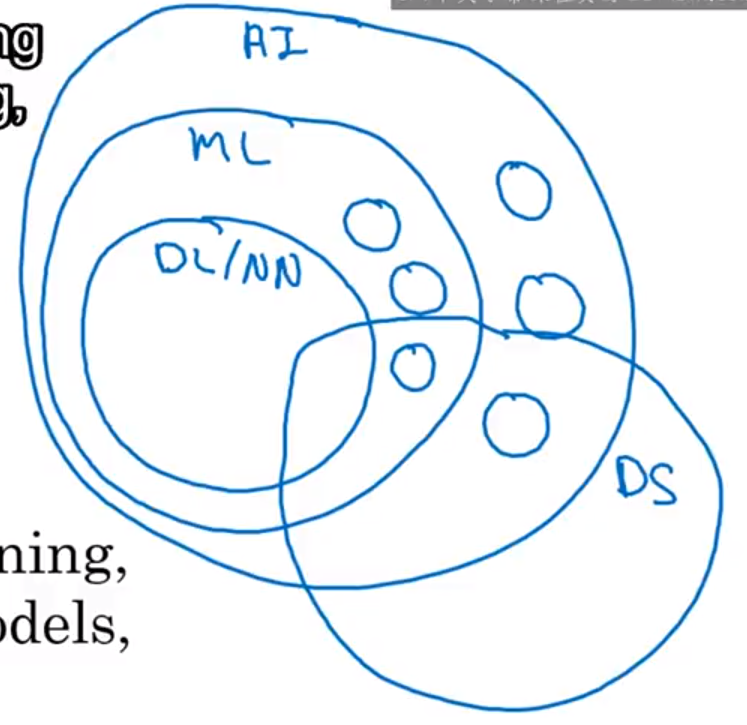 ng
g,
AI
ML
DL/NN
DS
ning,
odels,